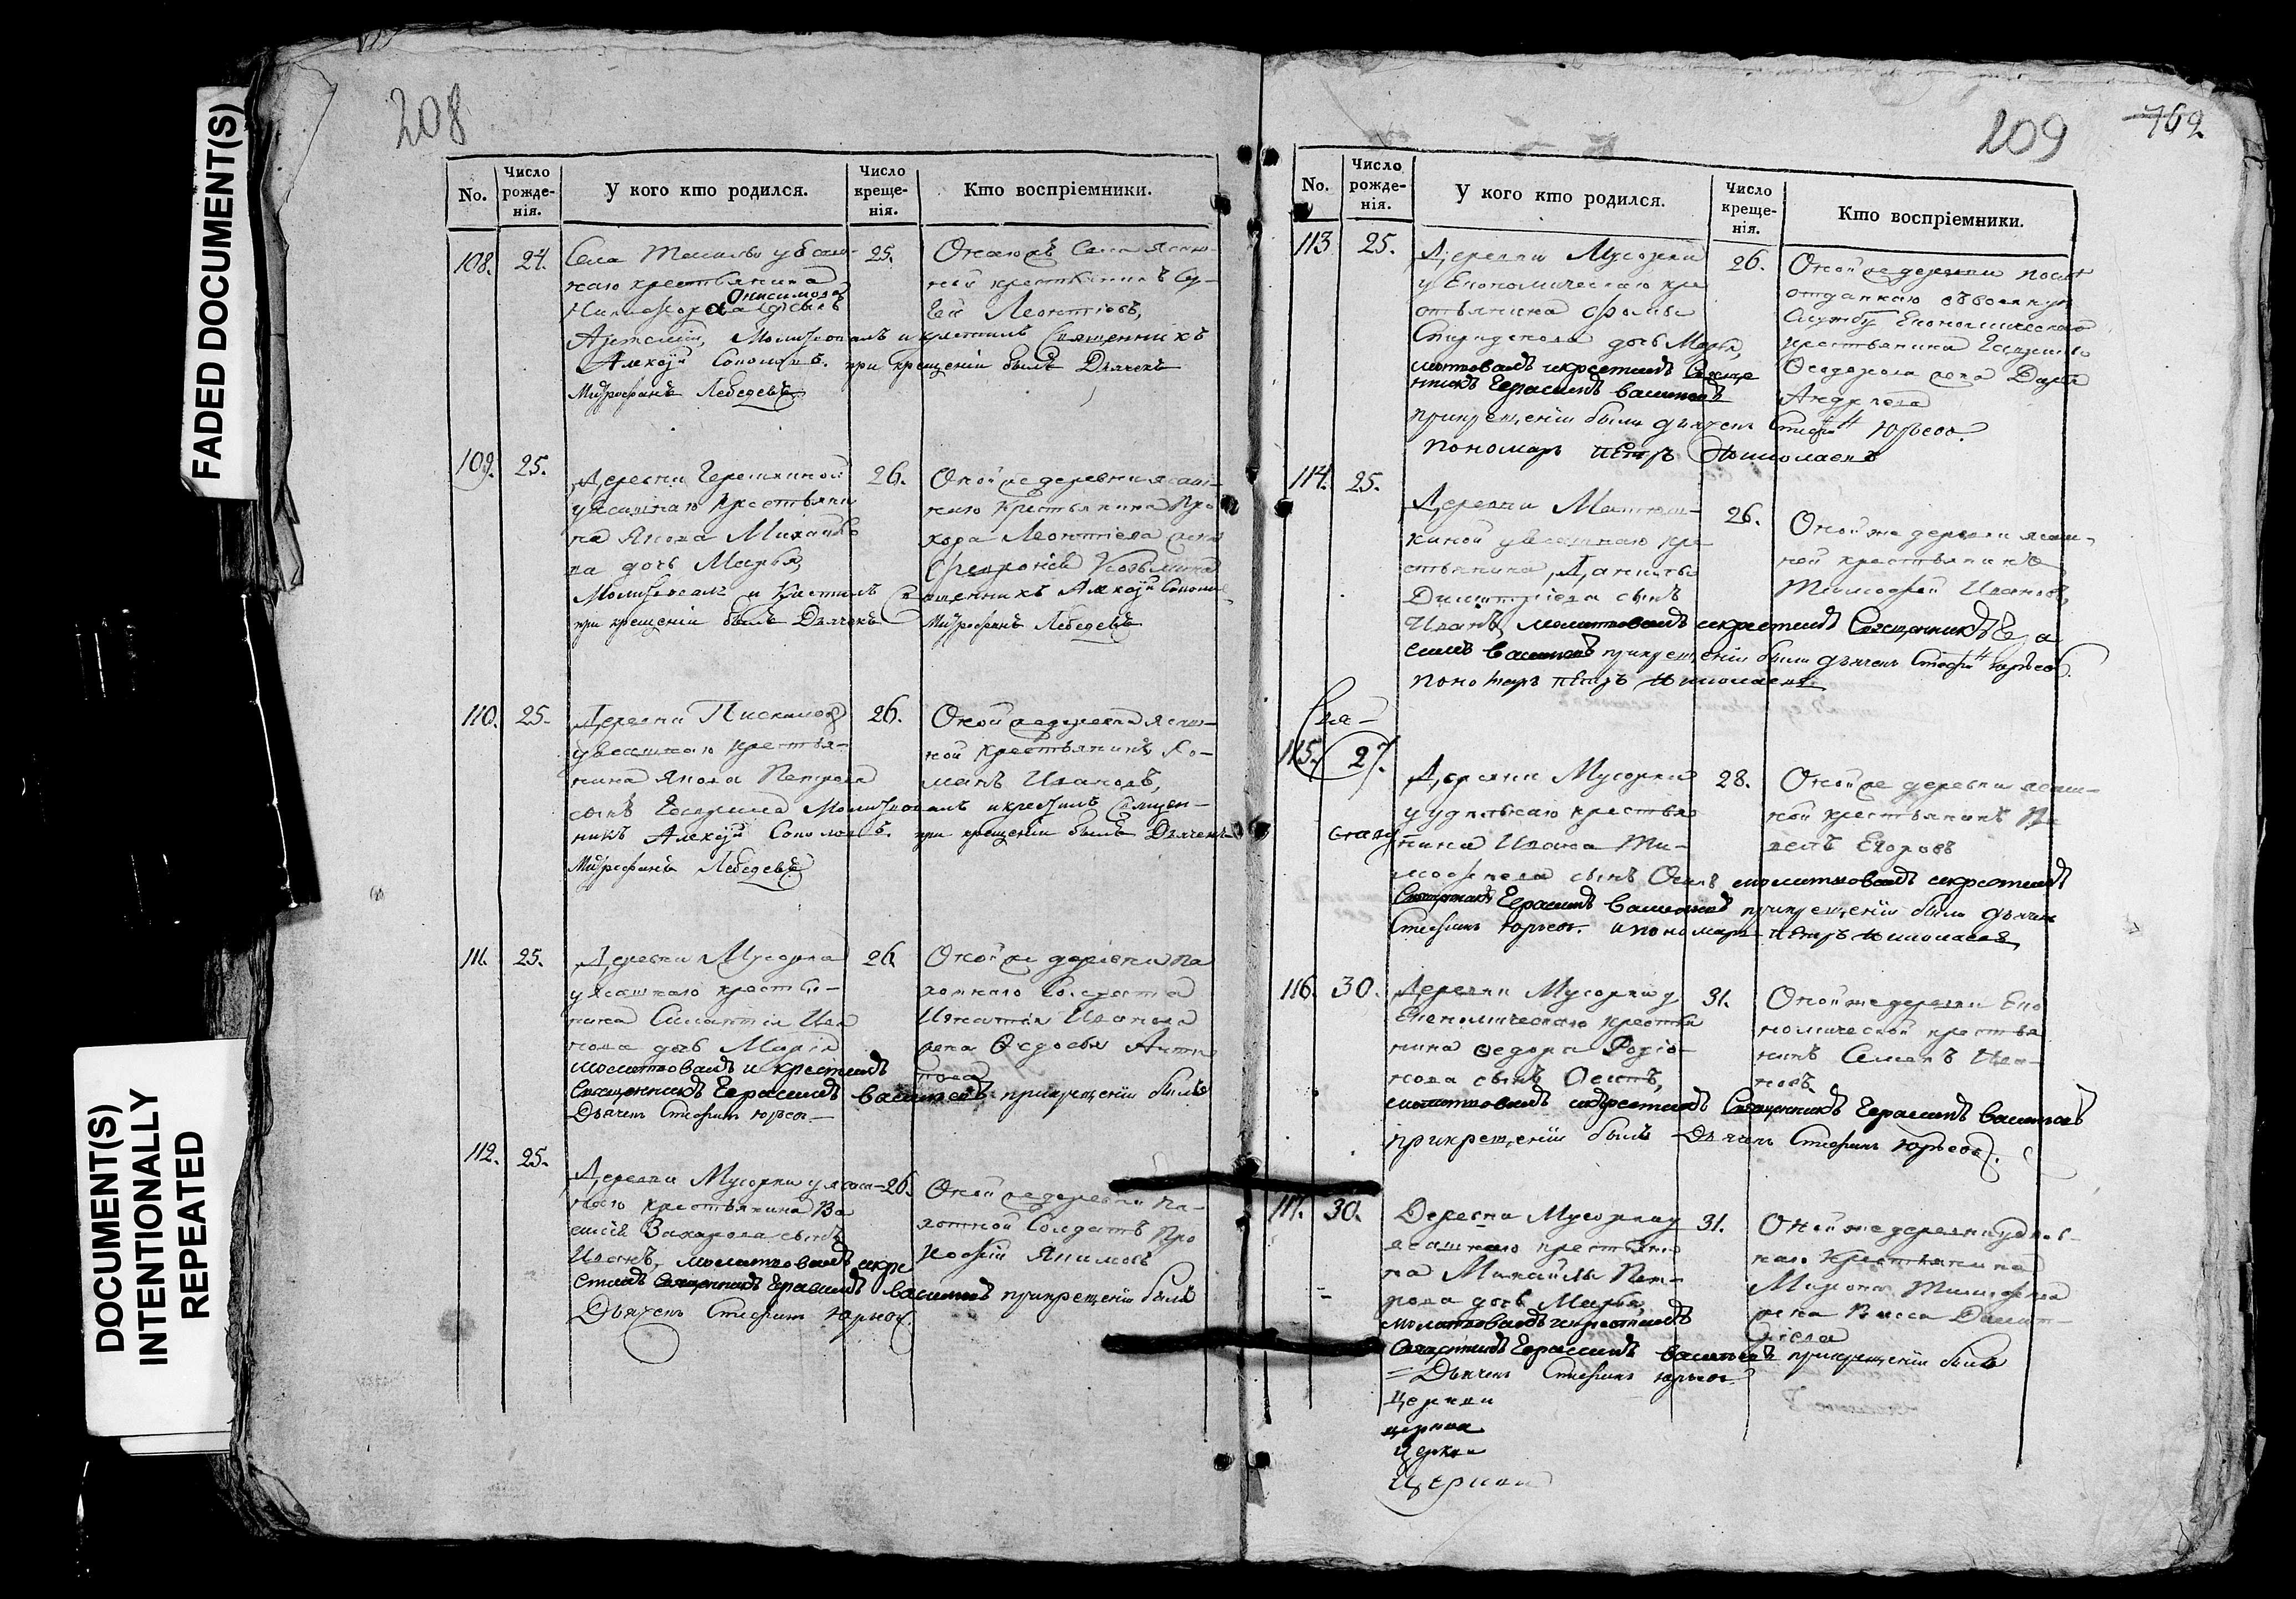 FADED DOCUMENT(S)
DOCUMENT(S)
INTENTIONALLY
REPEATED
208
No.
Число рожде- нія.
У кого кто родился.
Число креще- нія.
Кто воспріемники.
108. 24.
Села
крестьянина
Никифора Онисимова сынъ
Артемій, Молитвовалъ и крестилъ Священникъ
Алексѣй Соколовъ. при крещеніи былъ Дьячекъ
Митрофанъ Лебедевъ
25.
Онаго жъ Села ясаш-
ной крестьянинъ
Леонтіевъ,
109. 25.
Деревни
уясашнаго крестьяни
на Якова Михайло
ва дочь Марья,
Молитвовалъ и Крестилъ Священникъ Алексѣй Соколовъ
при крещеніи былъ Дьячекъ Митрофанъ Лебедевъ
26.
Оной же деревни ясаш-
наго крестьянина Про
хора Леонтіева жена
Февронія Козьмина
110. 25.
Деревни
уясашнаго крестья-
нина Якова Петрова
сынъ Молитвовалъ и крестилъ Священ-
никъ Алексѣй Соколовъ. при крещеніи былъ Дьячекъ
Митрофанъ Лебедевъ
26.
Оной же деревни ясаш-
ной крестьянинъ Ро-
манъ Ивановъ,
111. 25.
Деревни Мусорки
уясашнаго крестья-
нина Силантія Ива
нова дочь Марія
молитвовалъ и крестилъ
Священникъ Герасимъ Васильевъ прикрещеніи былъ
Дьячекъ Стефанъ Юрьев
26.
Оной же деревни па
хотнаго Солдата
Игнатія Иванова
жена Ѳедосья
112. 25.
Деревни Мусорки уясаш-
наго крестьянина Ва
силія Захарова сынъ
Иванъ, молитвовалъ икре
стилъ Священникъ Герасимъ Васильевъ прикрещеніи былъ
Дьячекъ Стефанъ Юрьев.
26.
Оной же деревни па-
хотной Солдатъ Про
кофій Якимовъ
109
No.
Число рожде- нія.
У кого кто родился.
Число креще- нія.
Кто воспріемники.
113 25.
Деревни Мусорки
у Економическаго кре
стьянина Фомы
Спиридонова дочь Марья,
молитвовалъ икрестилъ Свяще
нникъ Герасимъ Васильевъ
прикрещеніи были дьячекъ Стефанъ Юрьев.
пономарь Петръ Николаевъ
26.
Оной же деревни
отданнаго въвоенную
Службу Економическаго
крестьянина
Ѳедорова жена Дарья
Андреева
114. 25.
Деревни
киной уясашнаго кре
стьянина, Данилы
Димитріева сынъ
Иванъ, молитвовалъ икрестилъ Священникъ Гера
симъ Васильевъ прикрещеніи были дьячекъ Стефанъ Юрьев.
пономарь Петръ Николаевъ
26.
Оной же деревни ясаш-
ной крестьянинъ
Тимофей Ивановъ,
115. 27.
Деревни Мусорки
у удѣльнаго крестья
нина Ивана Ти-
мофеева сынъ Осипъ молитвовалъ икрестилъ
Священникъ Герасимъ Васильевъ прикрещеніи были дьячекъ
Стефанъ Юрьев. и пономарь Петръ Николаевъ
28.
Оной же деревни ясаш-
ной крестьянинъ Па
велъ Егоровъ
116. 30.
Деревни Мусорки у
Економическаго крестья
нина Ѳедора Родіо-
нова сынъ Осипъ,
молитвовалъ икрестилъ Священникъ Герасимъ Васильевъ
прикрещеніи былъ Дьячекъ Стефанъ Юрьев.
31.
Оной же деревни Еко
номической крестья
нинъ Семенъ Ива-
новъ
117. 30.
Деревни Мусорки у
ясашнаго крестьяни
на Михайлы Пет-
рова дочь Марья,
молитвовалъ икрестилъ
Священникъ Герасимъ Васильевъ прикрещеніи былъ
Дьячекъ Стефанъ Юрьев
31.
Оной же деревни удѣль-
наго крестьянина
Мирона Тимофеева
жена
Церкви
церкви
Церкви
Церкви